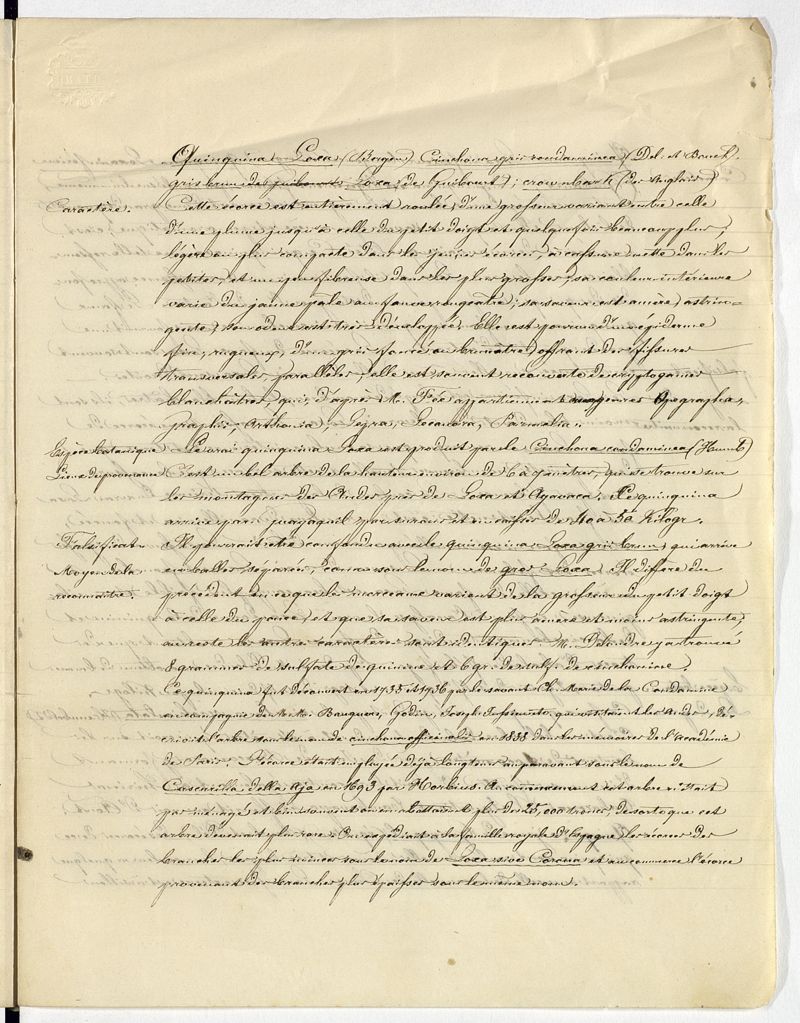 Quinquina Loxa (Bergen) Cinchona gris condaminea (Del. et Bouch.
gris brun de Loxa, de Guibourt); crownbark (des Anglais)
Caractère. Cette écorce est entièrement roulée, d'une grosseur variant entre celle
d'une plume jusqu'à celle du petit doigt et quelquefois beaucoup plus;
légère ou plus compacte dans les jeunes écorces, à cassure nette dans les
petites, et un peu fibreuse dans les plus grosses, sa couleur intérieure
varie du jaune pâle au fauve rougeâtre; sa saveur est amère, astrin-
gente, son odeur est très développée. Elle est pourvue d'un épiderme
fin, rugueux, d'un gris foncé ou brunâtre, offrant des fissures
transversales, parallèles, elle est souvent recouverte de cryptogames
blanchâtres, qui, d'après M. Fée appartiennent aux genres Opegrapha,
Graphis, Arthonia, Lepra, Lecanora, Parmelia.
Espèce botanique Le vrai quinquina Loxa est produit par le Cinchona condaminea (Humb.)
Lieux de provenance C'est un bel arbre de la hauteur environ de 6 à 7 mètres, qui se trouve sur
les montagnes des Andes près de Loxa et Ayavaca. Ce quinquina
arrive par Guayaquil par surons et en caisses de 40 à 50 Kilogr.
Falsificat. Il pourrait être confondu avec le quinquina Loxa gris brun, qui arrive
Moyen de la en balles séparées, connu sous le nom de gros Loxa. Il diffère du
reconnaître. précédent en ce que les morceaux varient de la grosseur du petit doigt
à celle du pouce, et que sa saveur est plus amère et moins astringente;
au reste les autres caractères sont identiques. M. Delondre y a trouvé
8 grammes de sulfate de quinine et 6 gr. de sulf. de cinchonine.
Ce quinquina fut découvert en 1735 et 1736 par le savant Ch. Marie de la Condamine
en compagnie de M.M. Bauguere, Godin, Joseph Jussieu etc. qui visitaient les Andes, dé-
crivit l'arbre sous le nom de cinchona officinalis en 1838 dans les mémoires de l'Académie
de Paris. L'écorce était employée déjà longtems auparavant sous le nom de
Cascarilla della Aja en 1693 par Morbius. Au commencement cet arbre n'était
pas ménagé et bien souvent on en abattait plus de 25,000 troncs, de sorte que cet
arbre devenait plus rare. On expédiait à la famille royale d'Espagne les écorces des
branches les plus minces sous le nom de Loxa sive Corona et au commerce l'écorce
provenant des branches plus épaisses sous le même nom.